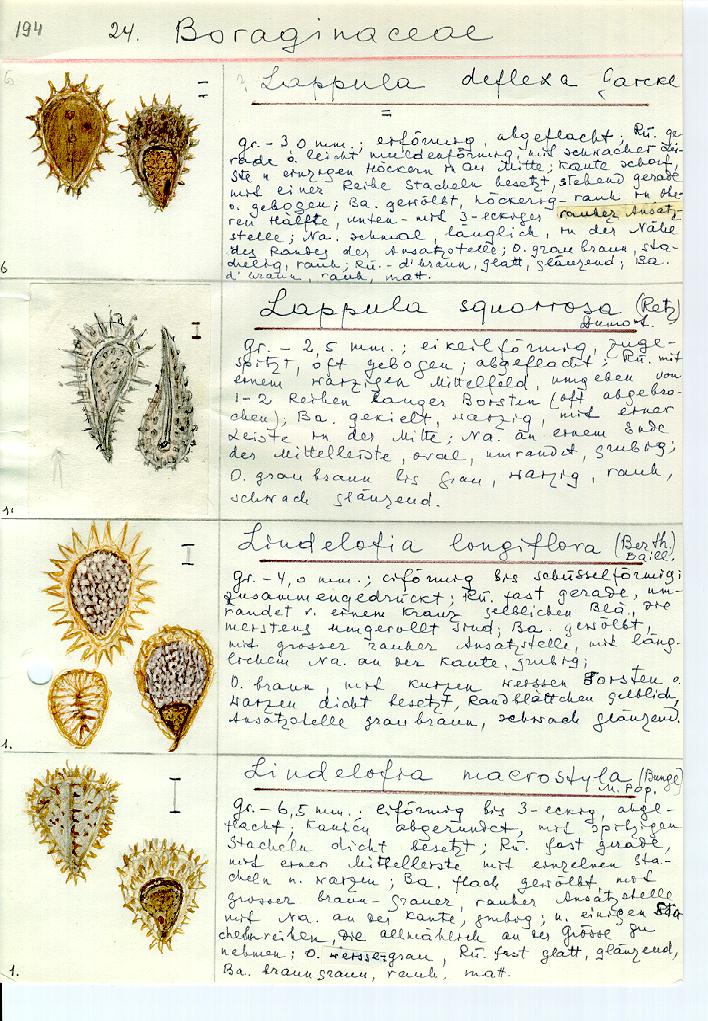 194 24. Boraginaceae
6
? Lappula deflexa Garcke
=
gr. - 3,0 mm.; eiförmig, abgeflacht; Rü. ge-
rade o. leicht muldenförmig, mit schwacher Lei-
ste u einzigen Höckern in der Mitte; Kante scharf,
mit einer Reihe Stacheln besetzt, stehend gerade
o. gebogen; Ba. gewölbt, höckerig-rauh in obe-
ren Hälfte, unten - mit 3-eckiger rauher Ansatz-
stelle; Na. schmal, länglich, in der Nähe
des Randes der Ansatzstelle; O. graubraun, sta-
chelig, rauh; Rü. - d'braun, glatt, glänzend; Ba.
d'braun, rauh, matt.
6
Lappula squarrosa (Retz)
Dumort.
gr. - 2,5 mm.; eikeilförmig, zuge-
spitzt, oft gebogen; abgeflacht; Rü. mit
einem warzigen Mittelfeld, umgeben von
1-2 Reihen langer Borsten (oft abgebro-
chen); Ba. gekielt, warzig, mit einer
Leiste in der Mitte; Na. an einem Ende
der Mittelleiste, oval, umrandet, grubig;
O. graubraun bis grau, warzig, rauh,
schwach glänzend.
1.
Lindelofia longiflora (Benth.)
Baill.
gr. - 4,0 mm.; eiförmig bis schüsselförmig;
zusammengedrückt; Rü. fast gerade, um-
randet v. einem Kranz gelblichen Blä., die
meistens umgerollt sind; Ba. gewölbt,
mit grosser rauher Ansatzstelle, mit läng-
lichem Na. an der Kante, grubig;
O. braun, mit kurzen weissen Borsten o.
Warzen dicht besetzt, Randblättchen gelblich,
Ansatzstelle graubraun, schwach glänzend.
1.
Lindelofia macrostyla (Bunge)
M. Pop.
gr. - 6,5 mm.; eiförmig bis 3-eckig, abge-
flacht; Kanten abgerundet, mit spitzigen
Stacheln dicht besetzt; Rü. fast gerade,
mit einer Mittelleiste mit einzelnen Sta-
cheln u. Warzen; Ba. flach gewölbt, mit
grosser braun-grauer, rauher Ansatzstelle
mit Na. an der Kante, grubig; u. einigen Sta-
chelnreihen, die allmählich an der Grösse zu
nehmen; O. weisse-grau, Rü. fast glatt, glänzend,
Ba. braungraun, rauh, matt.
1.